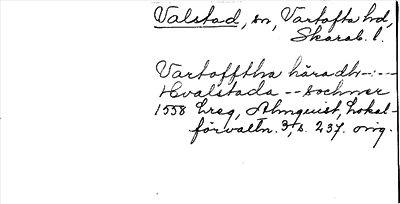 Valstad, sn, Vartofta hd,
Skarab. l.
Vartofftha häradh --:--
Hvalstada -- sochner
1558 Lreg, Almquist, Lokal-
förvaltn. 3, s. 237. orig.